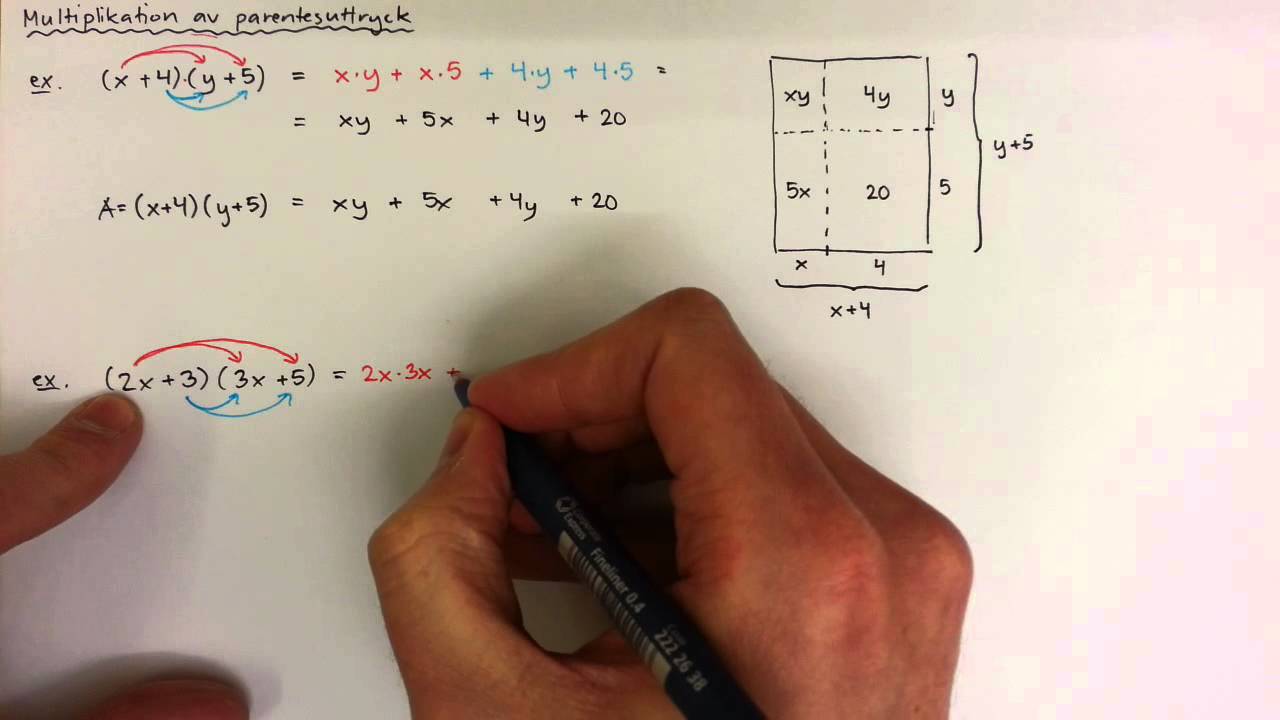 Multiplikation av parentesuttryck
ex. (x + 4)·(y + 5) = x·y + x·5 + 4·y + 4·5 =
= xy + 5x + 4y + 20
A = (x+4)(y+5) = xy + 5x + 4y + 20
xy 4y y
y+5
5x 20 5
x 4
x+4
ex. (2x + 3)(3x + 5) = 2x·3x +
Fineliner 0.4
222 26 38